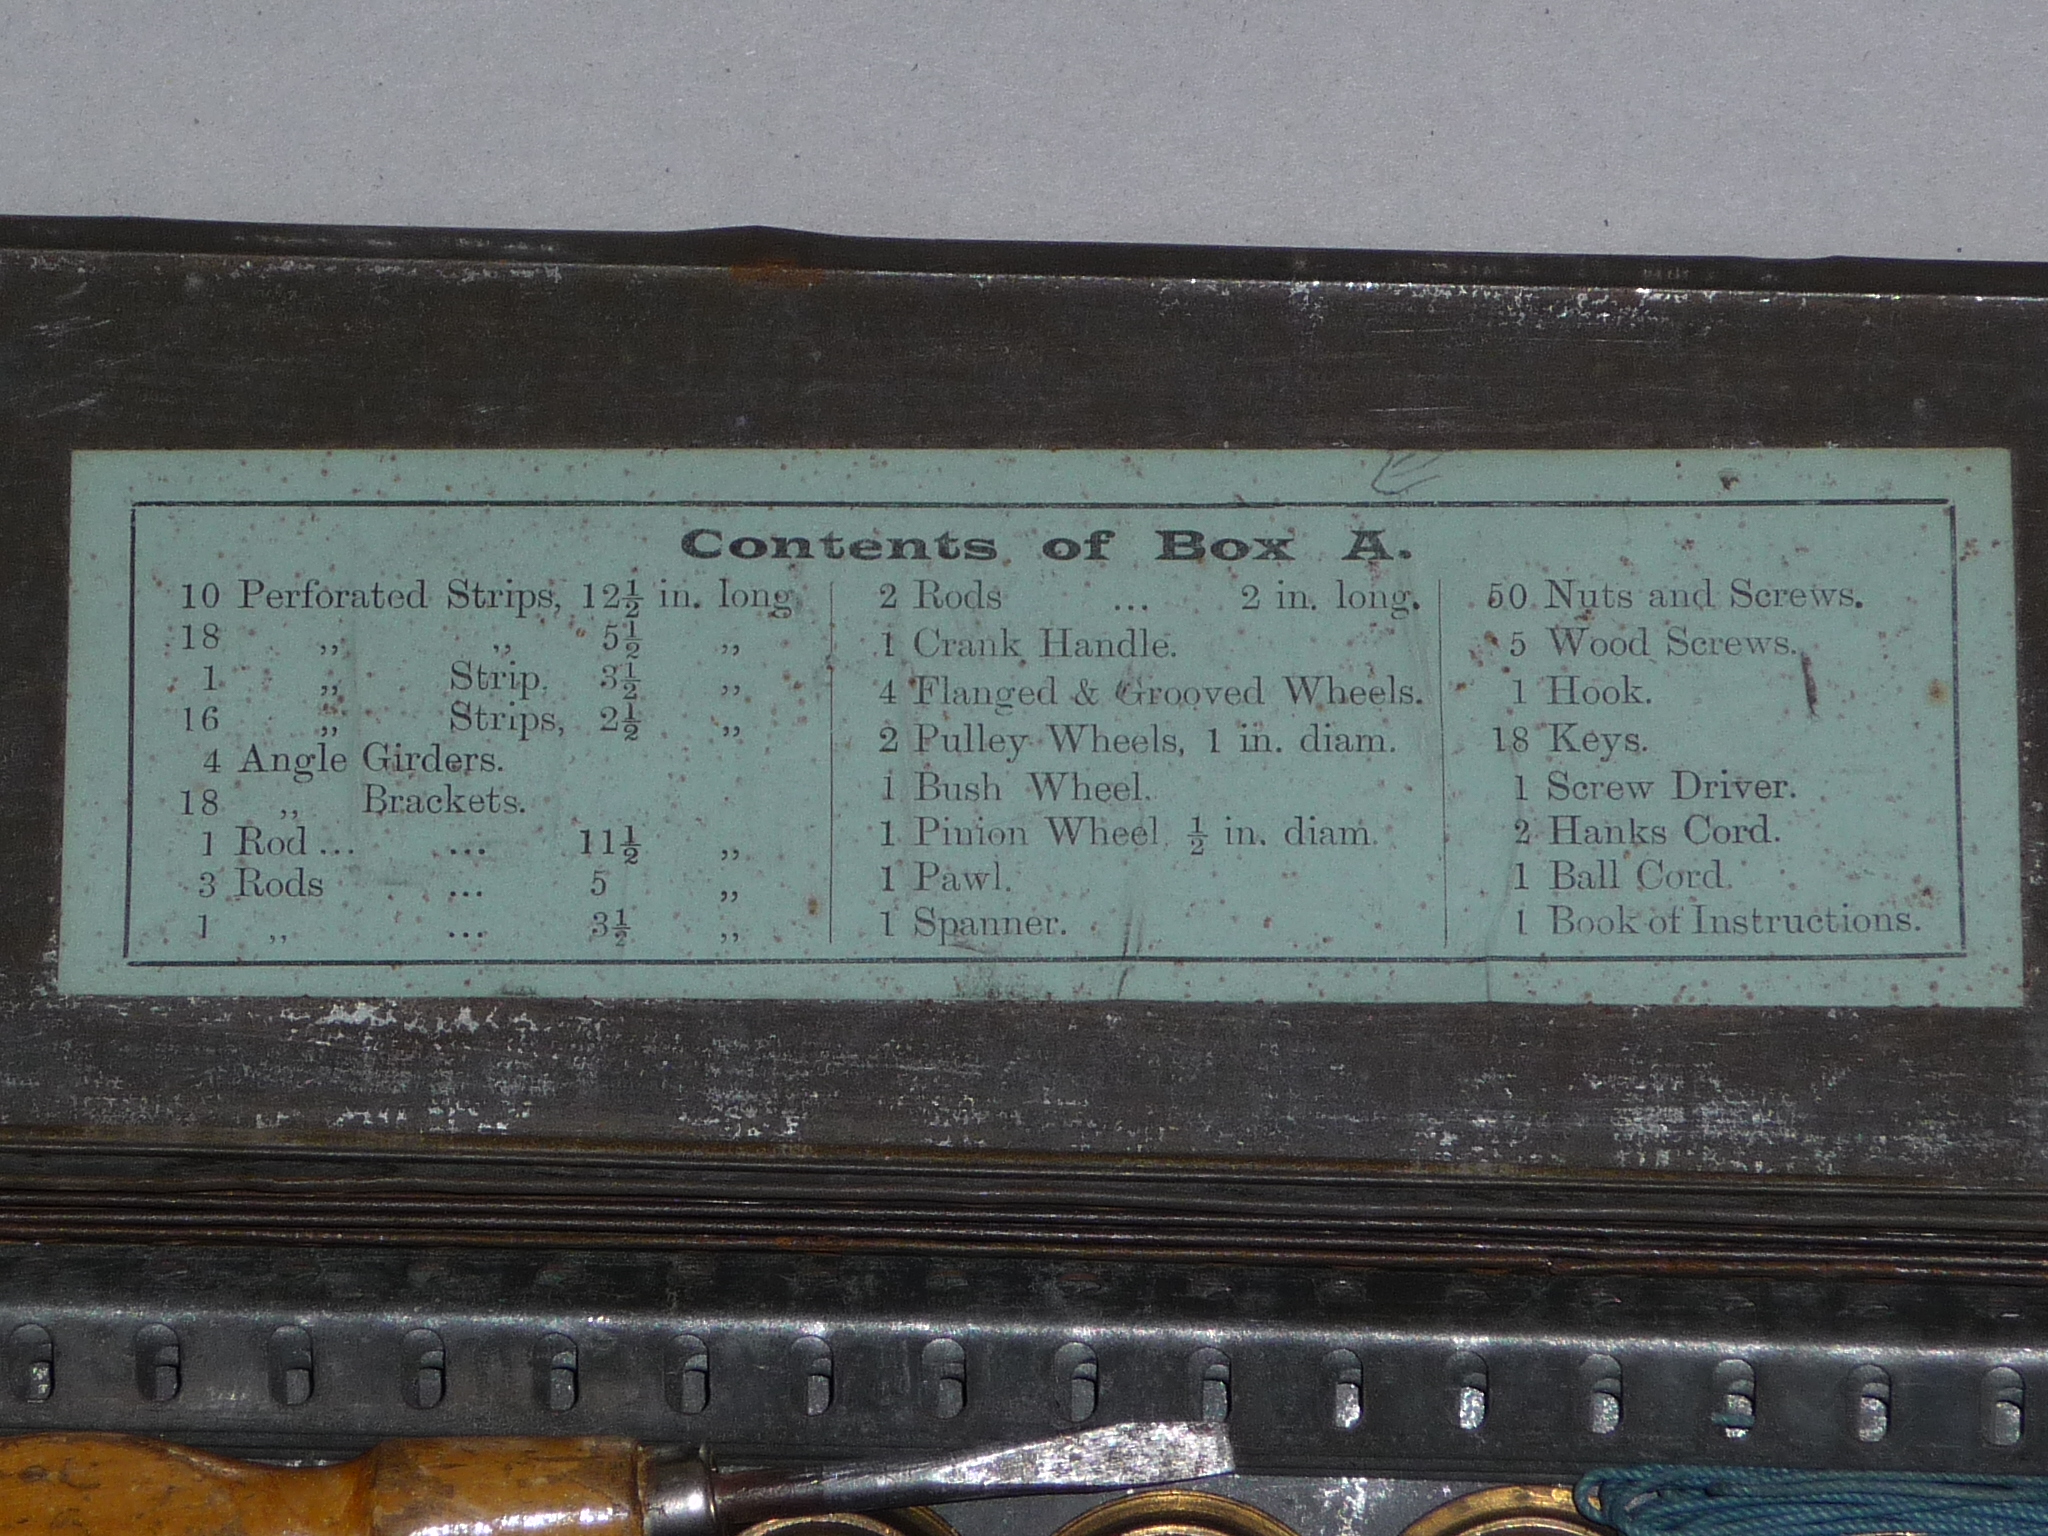 Contents of Box A.
10 Perforated Strips, 12½ in. long
18 ,, ,, 5½ ,,
1 ,, Strip, 3½ ,,
16 ,, Strips, 2½ ,,
4 Angle Girders.
18 ,, Brackets.
1 Rod ... ... 11½ ,,
3 Rods ... 5 ,,
1 ,, ... 3½ ,,
2 Rods ... 2 in. long.
1 Crank Handle.
4 Flanged & Grooved Wheels.
2 Pulley Wheels, 1 in. diam.
1 Bush Wheel.
1 Pinion Wheel, ½ in. diam.
1 Pawl.
1 Spanner.
50 Nuts and Screws.
5 Wood Screws.
1 Hook.
18 Keys.
1 Screw Driver.
2 Hanks Cord.
1 Ball Cord.
1 Book of Instructions.